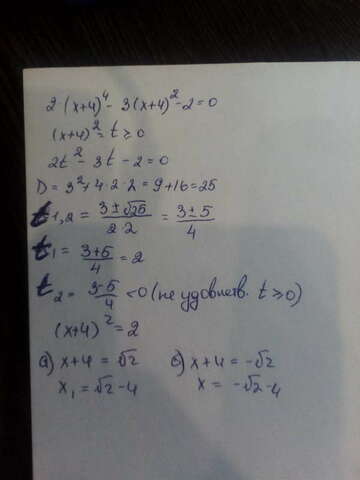 2·(x+4)⁴ - 3(x+4)² - 2 = 0
(x+4)² = t ≥ 0
2t² - 3t - 2 = 0
D = 3² + 4·2·2 = 9+16 = 25
t₁,₂ = (3±√25)/(2·2) = (3±5)/4
t₁ = (3+5)/4 = 2
t₂ = (3-5)/4 < 0 (не удовлетв. t ≥ 0)
(x+4)² = 2
а) x+4 = √2 б) x+4 = -√2
x₁ = √2-4 x = -√2-4